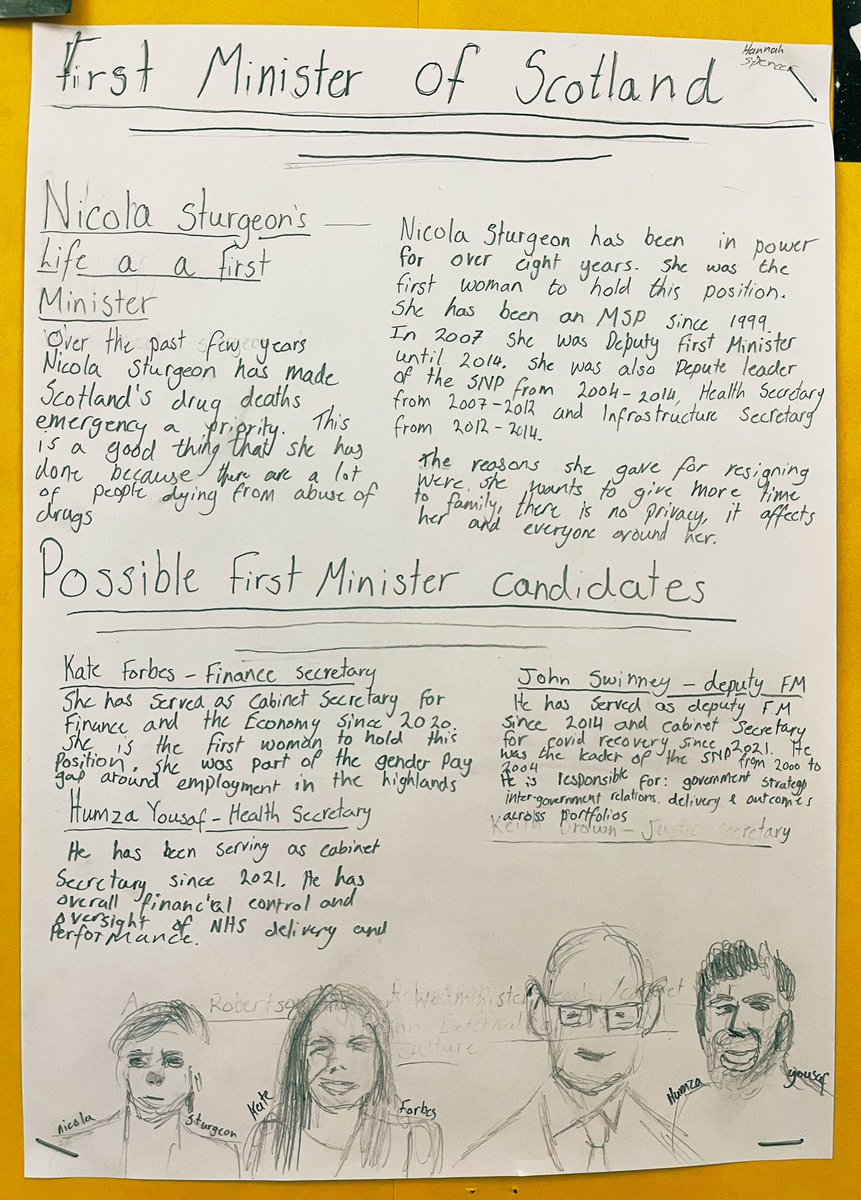 First Minister of Scotland
Hannah
Spencer
Nicola Sturgeon's
Life a a first
Minister
Over the past few years
Nicola Sturgeon has made
Scotland's drug deaths
emergency a priority. This
is a good thing that she has
done because there are a lot
of people dying from abuse of
drugs
Nicola Sturgeon has been in power
for over eight years. She was the
first woman to hold this position.
She has been an MSP since 1999.
In 2007 she was Deputy First Minister
until 2014. She was also Depute leader
of the SNP from 2004-2014, Health Secretary
from 2007-2012 and Infrastructure Secretary
from 2012-2014.
The reasons she gave for resigning
were she wants to give more time
to family, there is no privacy, it affects
her and everyone around her.
Possible First Minister candidates
Kate Forbes - Finance secretary
She has served as Cabinet Secretary for
Finance and the Economy since 2020.
She is the first woman to hold this
Position, she was part of the gender pay
gap around employment in the highlands
Humza Yousaf - Health Secretary
He has been serving as cabinet
Secretary since 2021. He has
overall financial control and
oversight of NHS delivery and
Performance.
John Swinney - deputy FM
He has served as deputy FM
since 2014 and cabinet Secretary
for covid recovery since 2021. He
was the leader of the SNP from 2000 to
2004
He is responsible for: government strategy
inter-government relations. delivery & outcomes
across portfolios
Keith Brown - Justice Secretary
Robertson Westminister
External
culture
nicola
Sturgeon
Kate
Forbes
Humza
yousaf